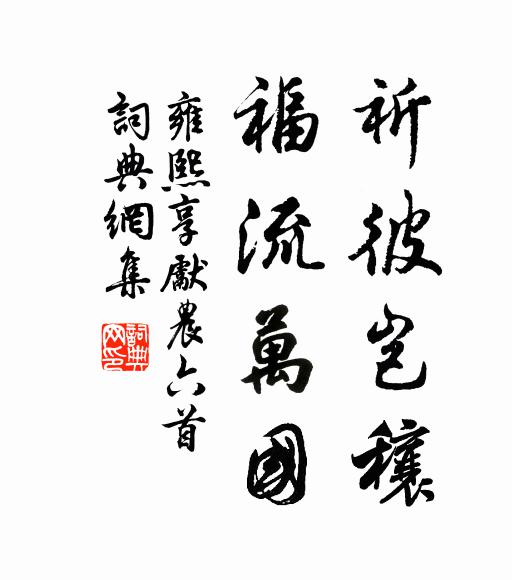 祈彼豈穰
福流萬國
雍熙享獻農六首
詞典網集
詞典网印